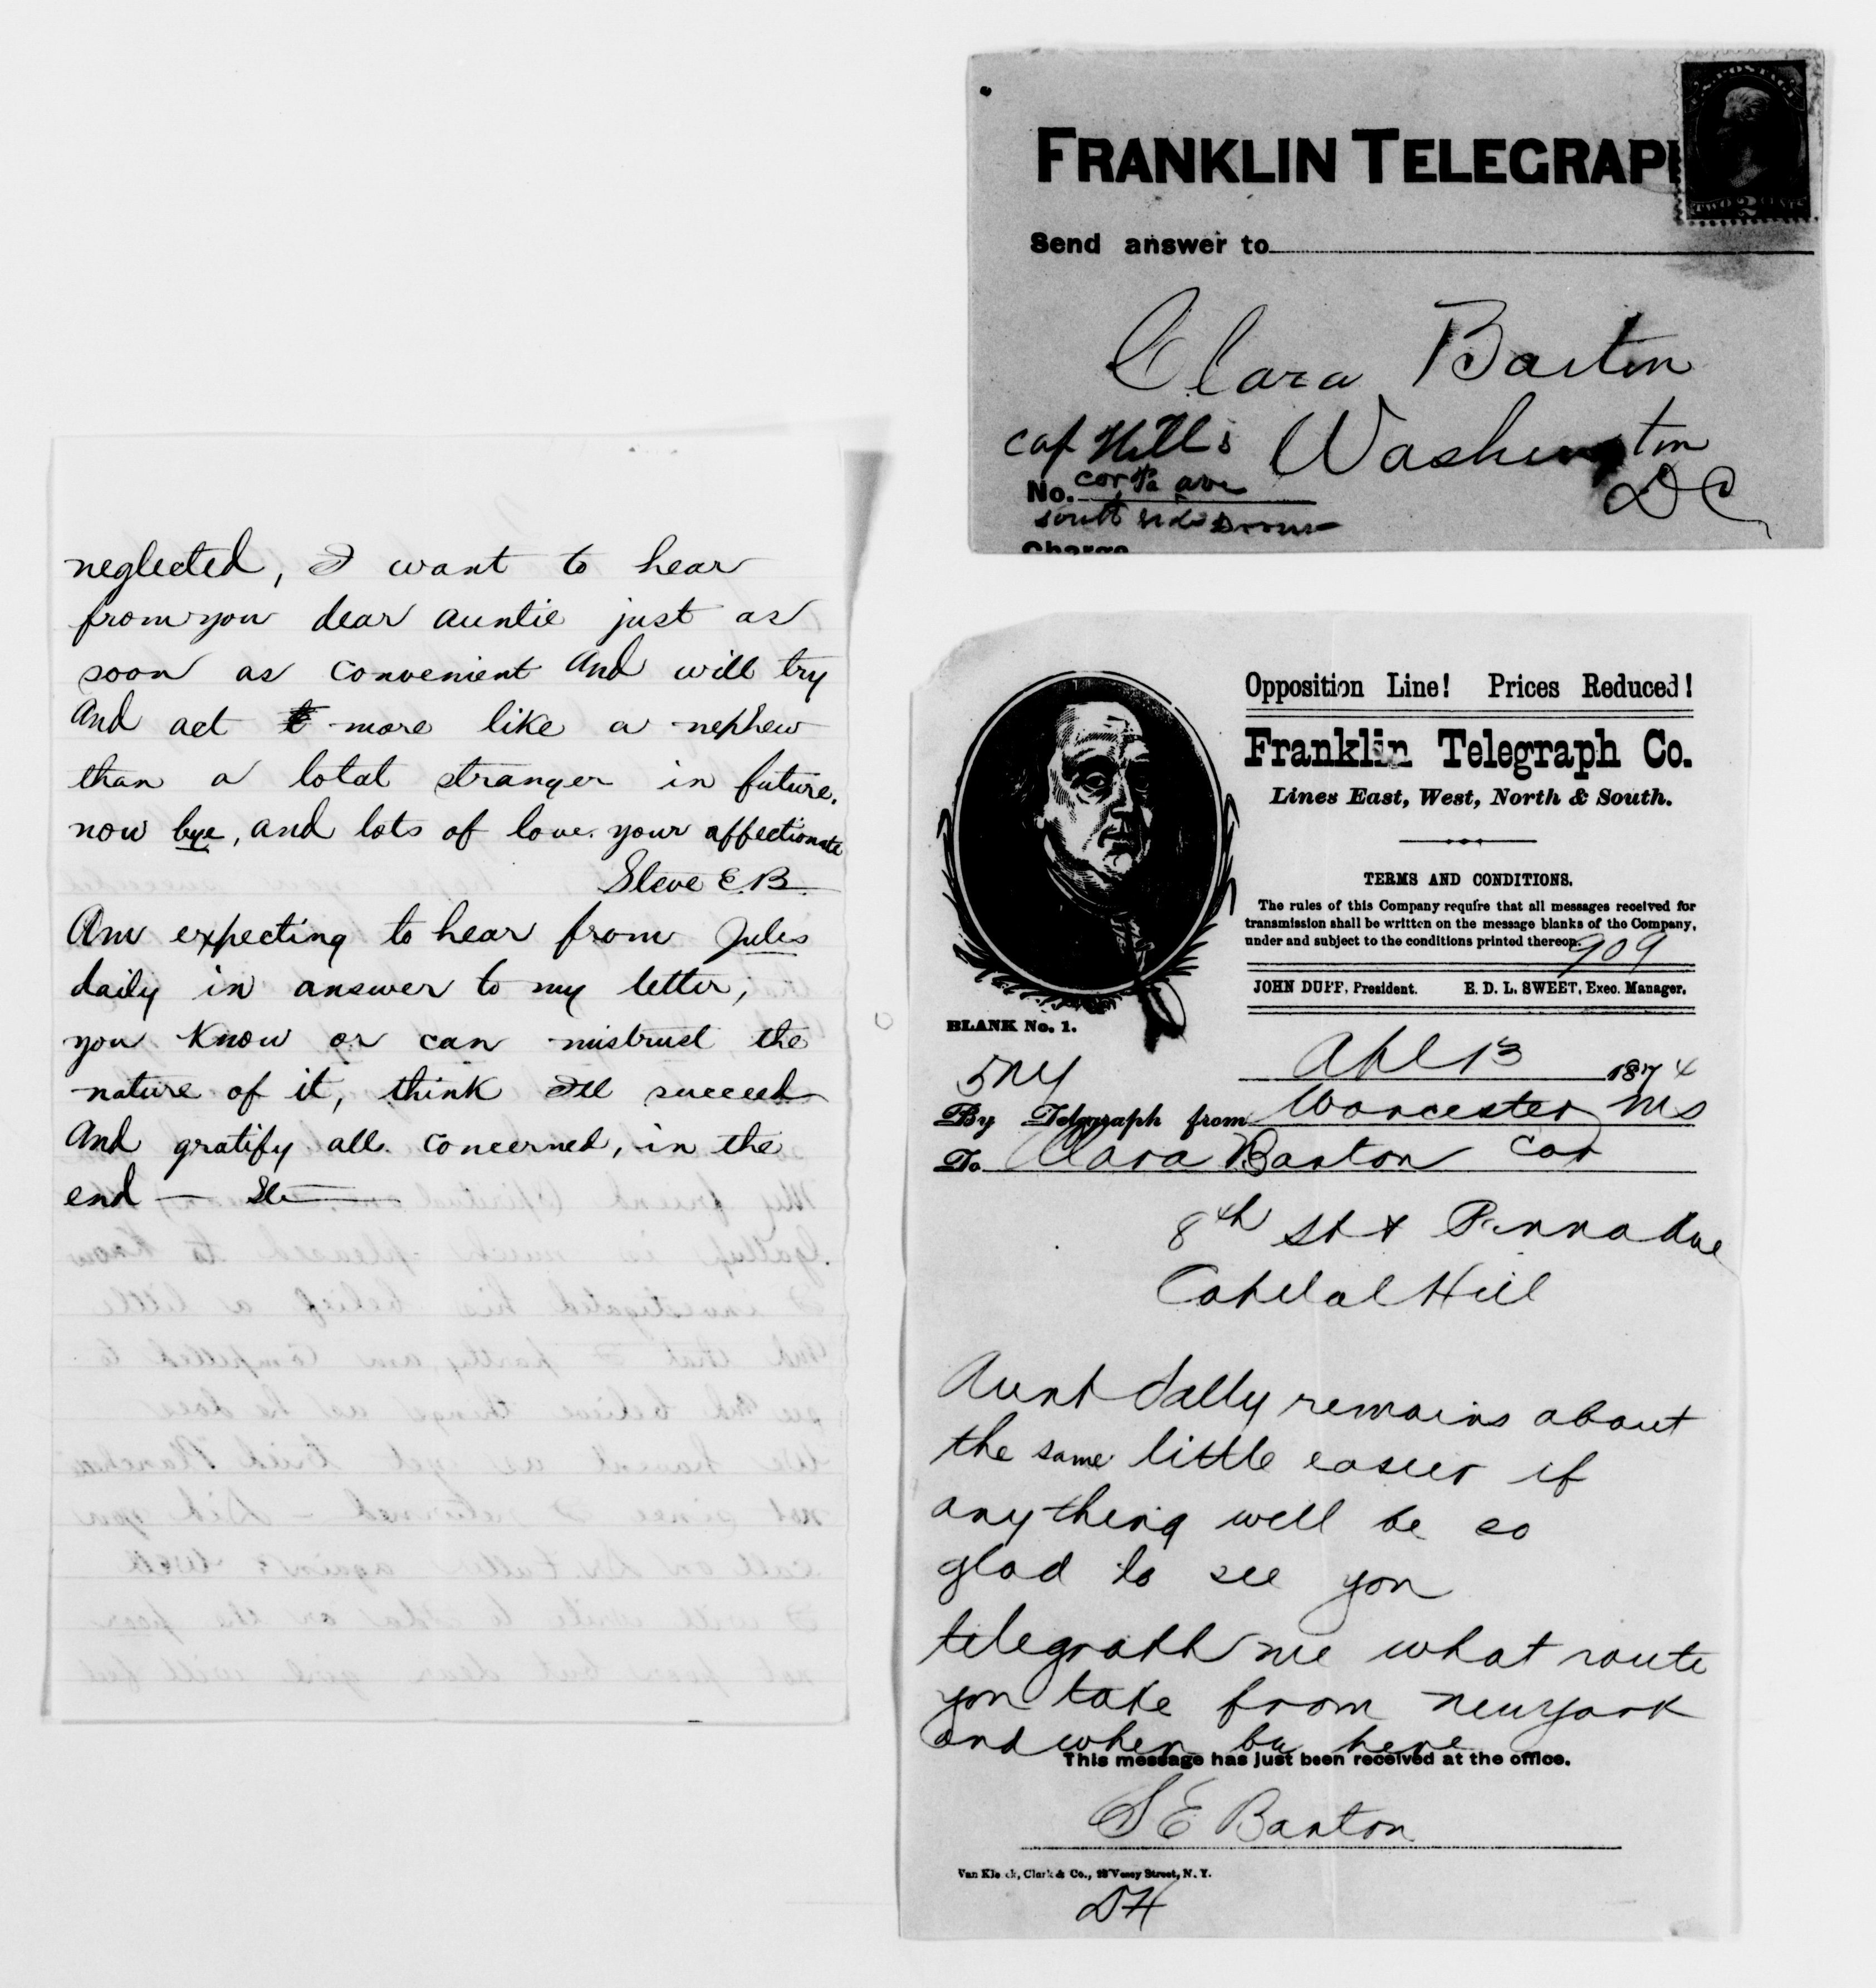 neglected, I want to hear
from you dear auntie just as
soon as convenient And will try
And act more like a nephew
than a total stranger in future.
now bye, and lots of love. your affectionate
Steve E.B.
Am expecting to hear from Jules
daily in answer to my letter,
you know or can mistrust the
nature of it, think Ill succeed
And gratify all concerned, in the
end — Ste
FRANKLIN TELEGRAPH
U.S. POSTAGE
TWO 2 CENTS
Send answer to
Clara Barton
Cap Hill
Washington
No. cor Pa ave
DC
south side
Charge
Opposition Line! Prices Reduced!
Franklin Telegraph Co.
Lines East, West, North & South.
TERMS AND CONDITIONS.
The rules of this Company require that all messages received for
transmission shall be written on the message blanks of the Company,
under and subject to the conditions printed thereon.
909
JOHN DUFF, President. E. D. L. SWEET, Exec. Manager.
BLANK No. 1.
5 NY
Apl 13 1874
By Telegraph from Worcester Ms
To Clara Barton Cor
8th St & Penna Ave
Capital Hill
Aunt Sally remains about
the same little easier if
anything well be so
glad to see you
telegraph me what route
you take from New York
and when be here
This message has just been received at the office.
S E Barton
Van Kleeck, Clark & Co., Vesey Street, N. Y.
DH